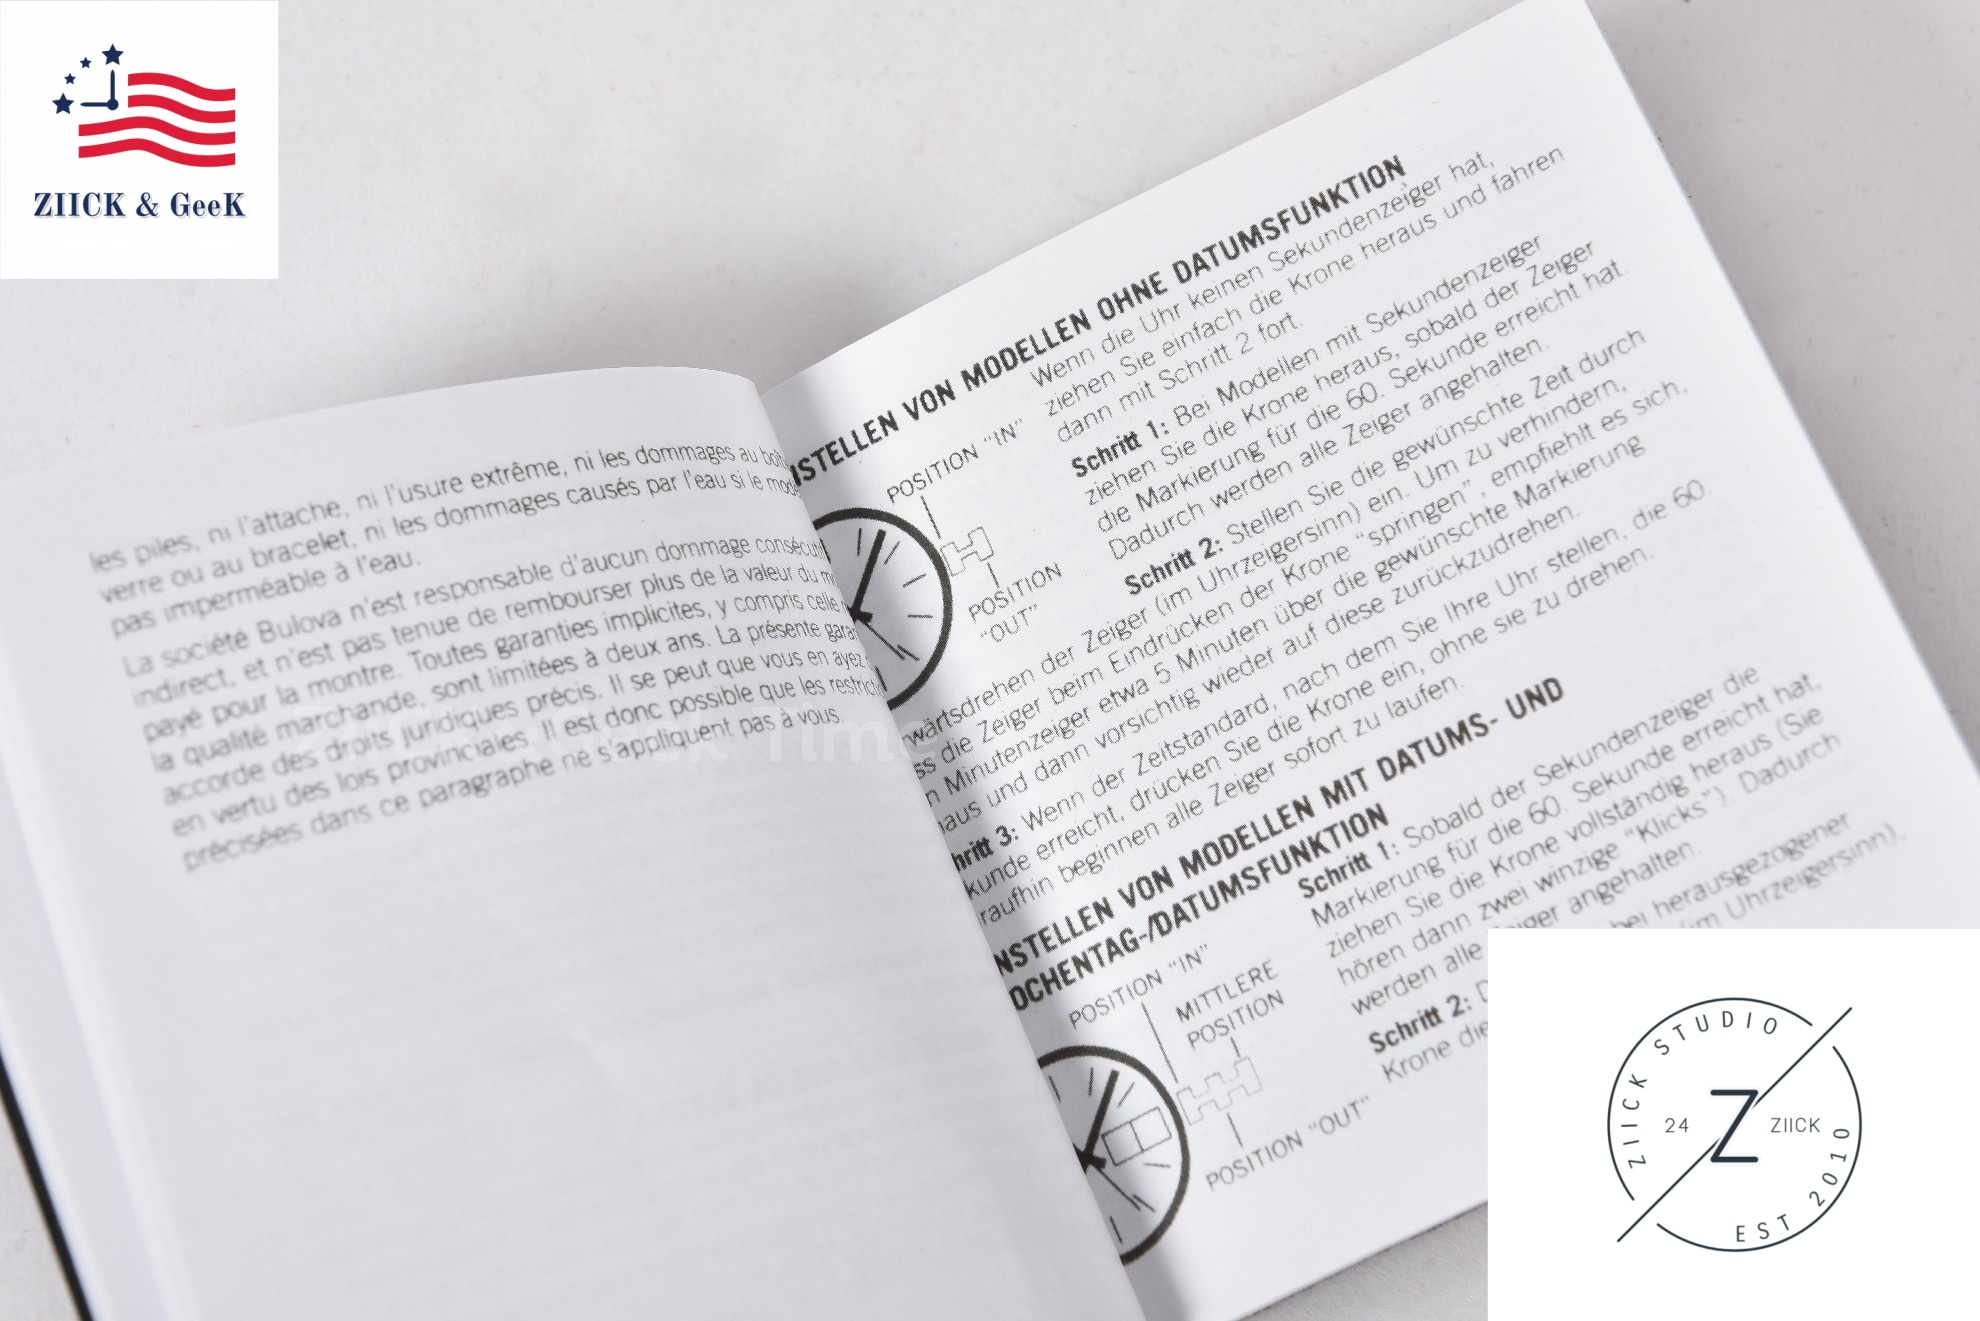 ZIICK & GeeK
les piles, ni l'attache, ni l'usure extrême, ni les dommages au
verre ou au bracelet, ni les dommages causés par l'eau si le
pas imperméable à l'eau.
La société Bulova n'est responsable d'aucun dommage
indirect, et n'est pas tenue de rembourser plus de la valeur du
payé pour la montre. Toutes garanties implicites, y compris celle
la qualité marchande, sont limitées à deux ans. La présente
accorde des droits juridiques précis. Il se peut que vous en ayez
en vertu des lois provinciales. Il est donc possible que les
précisées dans ce paragraphe ne s'appliquent pas à vous.
NSTELLEN VON MODELLEN OHNE DATUMSFUNKTION
POSITION "IN"
POSITION
"OUT"
Wenn die Uhr keinen Sekundenzeiger hat,
ziehen Sie einfach die Krone heraus und fahren
dann mit Schritt 2 fort.
Schritt 1: Bei Modellen mit Sekundenzeiger
ziehen Sie die Krone heraus, sobald der Zeiger
die Markierung für die 60. Sekunde erreicht hat.
Dadurch werden alle Zeiger angehalten.
Schritt 2: Stellen Sie die gewünschte Zeit durch
wärtsdrehen der Zeiger (im Uhrzeigersinn) ein. Um zu verhindern,
ss die Zeiger beim Eindrücken der Krone "springen", empfiehlt es sich,
n Minutenzeiger etwa 5 Minuten über die gewünschte Markierung
naus und dann vorsichtig wieder auf diese zurückzudrehen.
hritt 3: Wenn der Zeitstandard, nach dem Sie Ihre Uhr stellen, die 60.
kunde erreicht, drücken Sie die Krone ein, ohne sie zu drehen.
raufhin beginnen alle Zeiger sofort zu laufen.
NSTELLEN VON MODELLEN MIT DATUMS- UND
OCHENTAG-/DATUMSFUNKTION
POSITION "IN"
MITTLERE
POSITION
POSITION "OUT"
Schritt 1: Sobald der Sekundenzeiger die
Markierung für die 60. Sekunde erreicht hat,
ziehen Sie die Krone vollständig heraus (Sie
hören dann zwei winzige "Klicks"). Dadurch
werden alle Zeiger angehalten.
Schritt 2: bei herausgezogener
Krone die (im Uhrzeigersinn),
ZIICK STUDIO
24 Z ZIICK
EST 2010